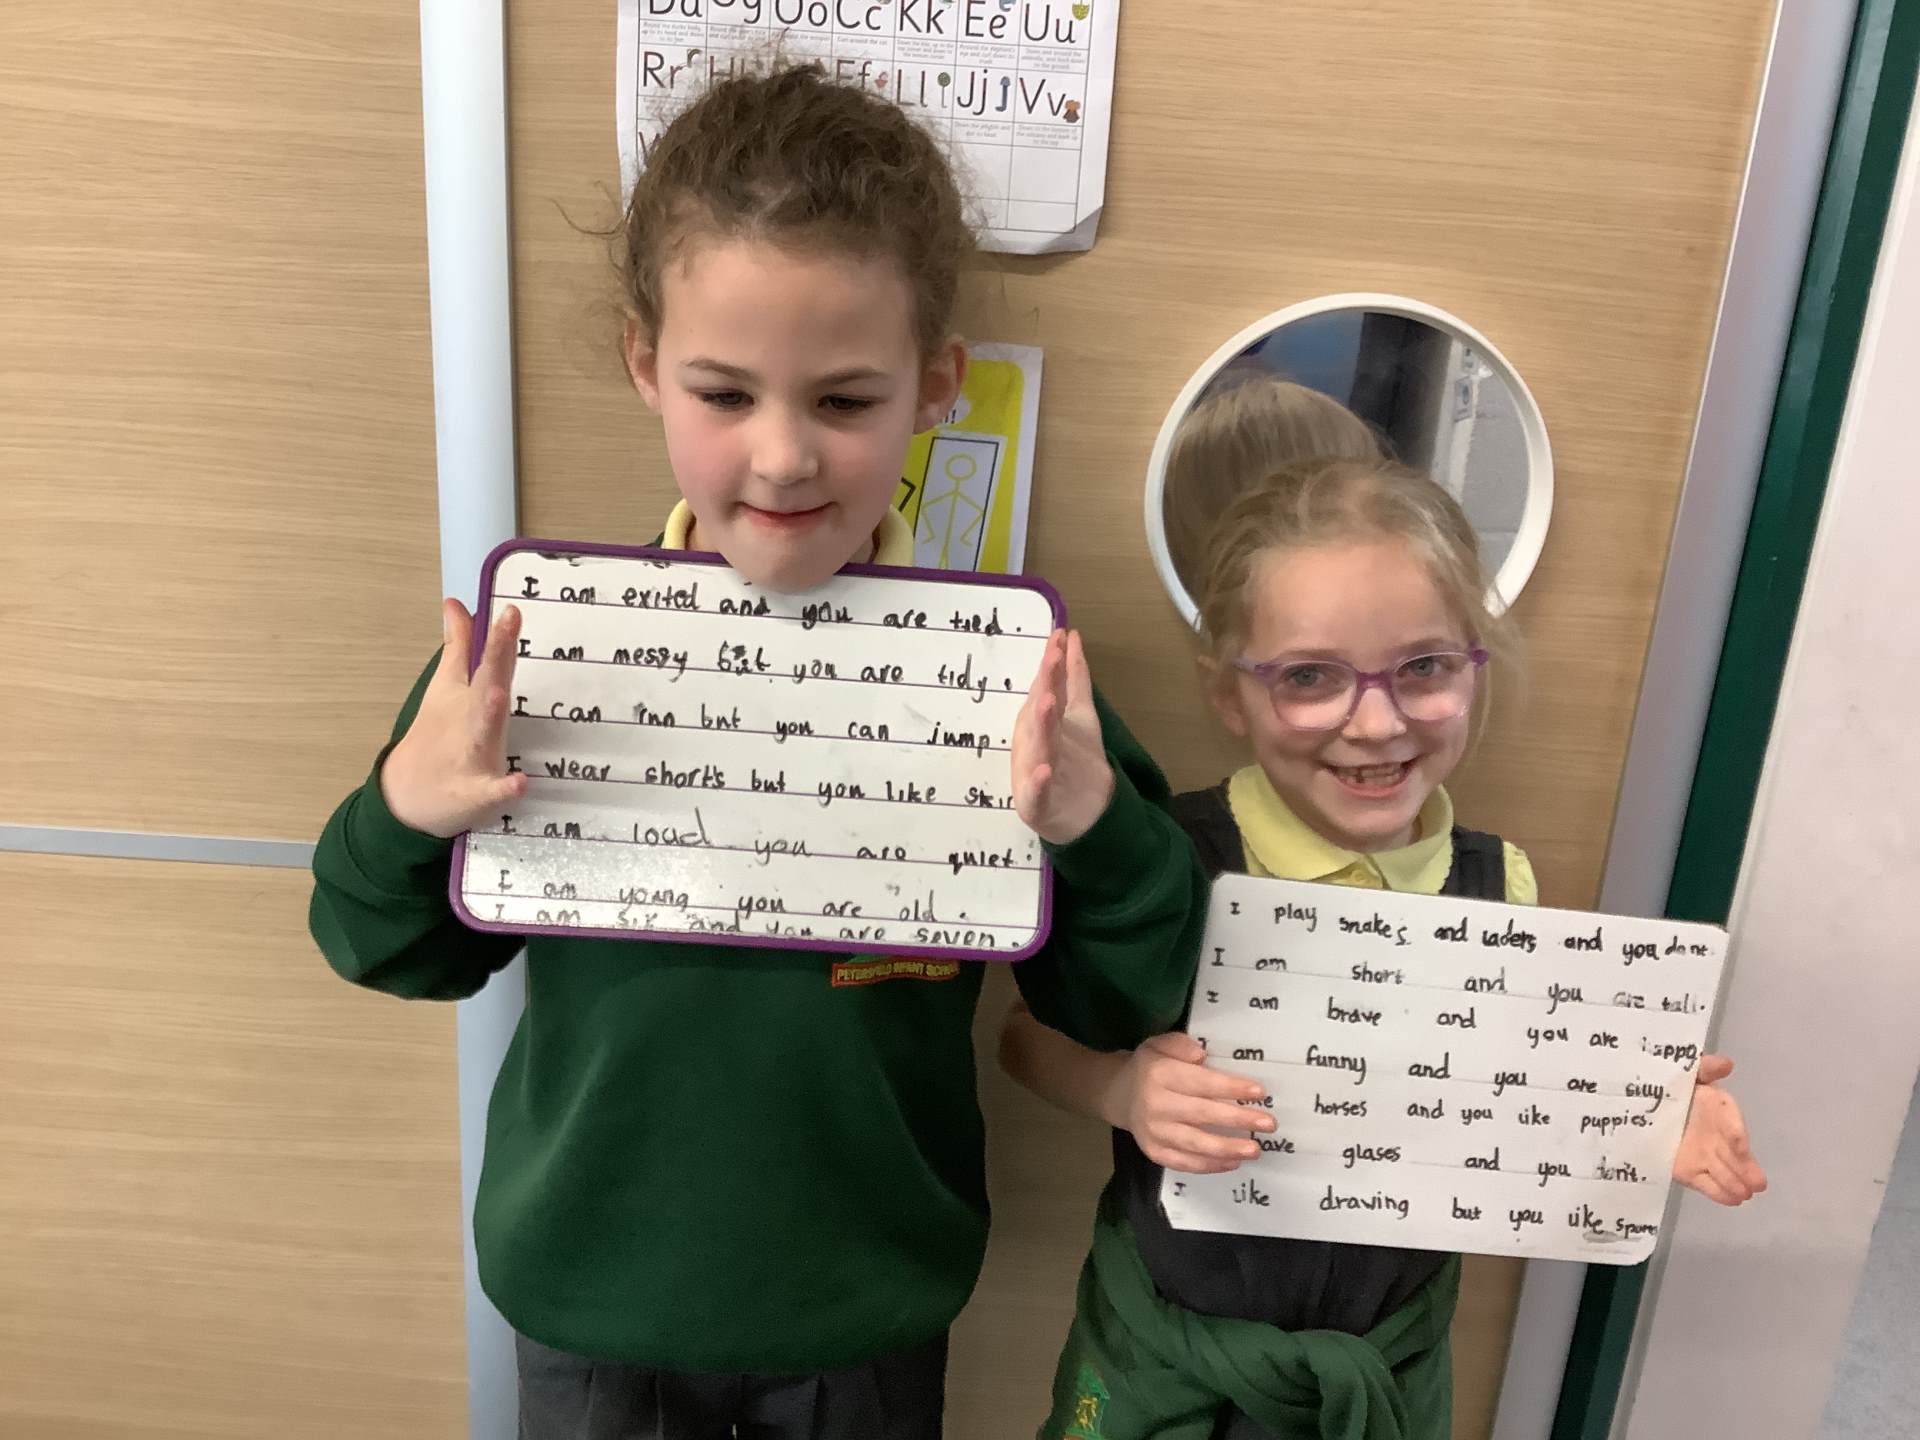 Da Oo Cc Kk Ee Uu
Rr Ff Ll Jj Vv
I am exited and you are tied.
I am messy but you are tidy.
I can run but you can jump.
I wear short's but you like
I am loud you are quiet.
I am young you are old.
I am six and you are seven.
PETERSFIELD INFANT SCHOOL
I play snakes and laders and you dont.
I am short and you are tall.
I am brave and you are happy.
I am funny and you are silly.
horses and you like puppies.
have glases and you don't.
I like drawing but you like